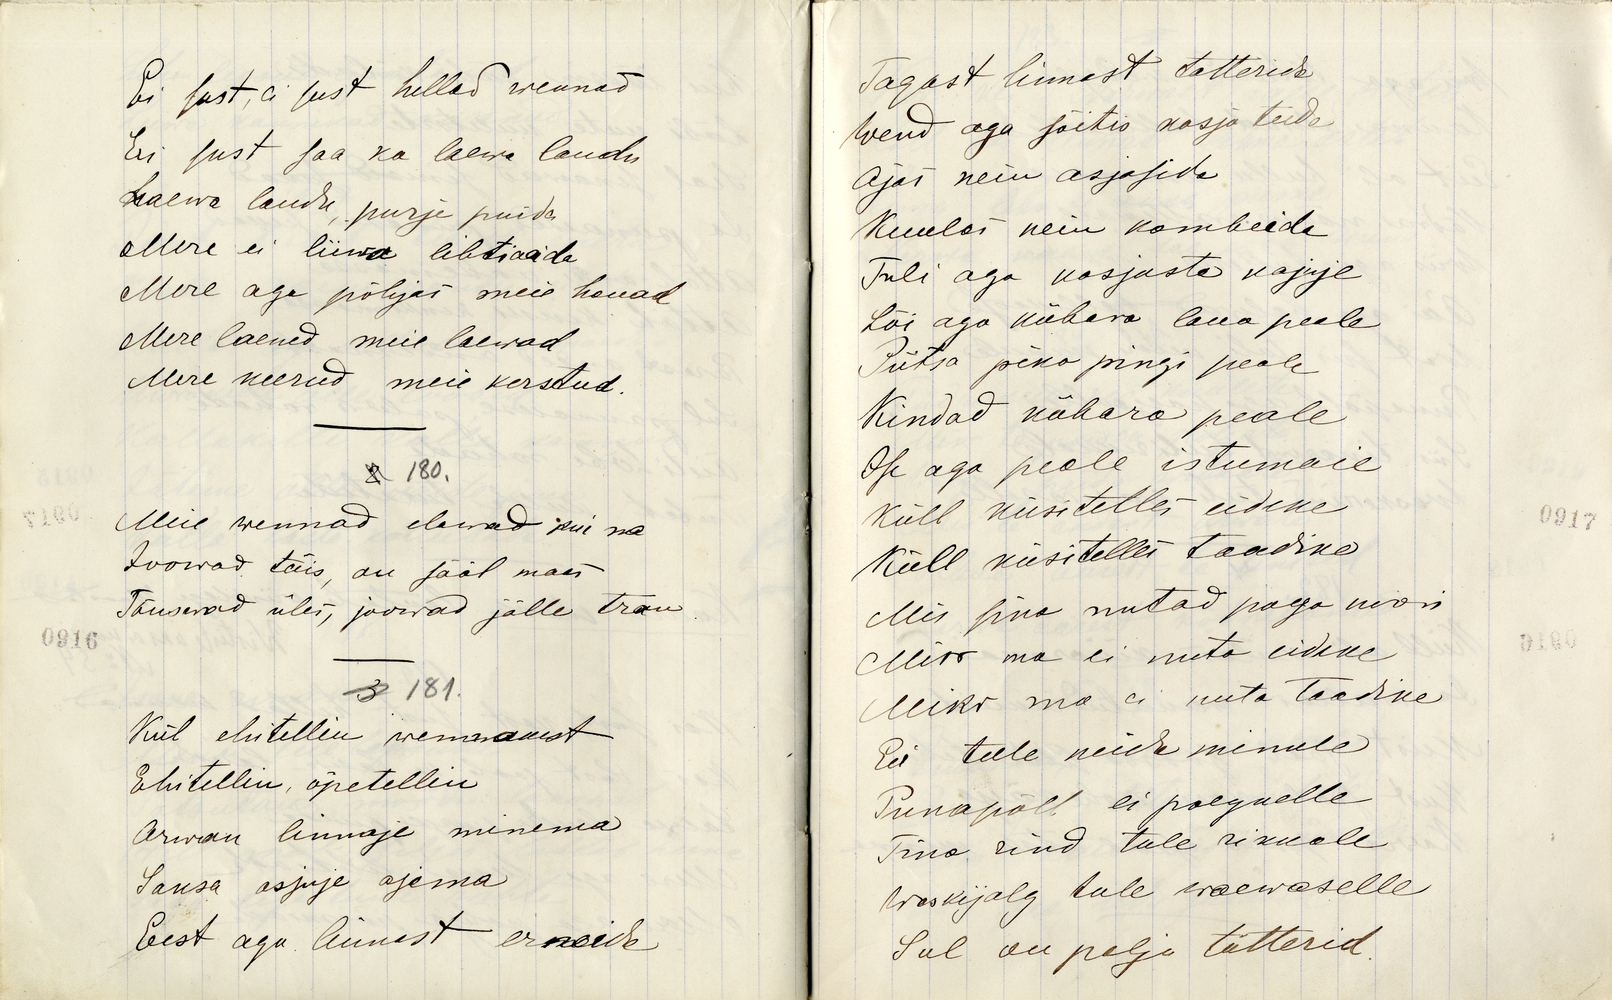 Ei sust, ei sust hellad wennad
Ei sust saa ka laewa laudu
Laewa lauda, purje puida
Mere ei liiwa libtiaida
Mere aga põhjas meie hauad
Mere laened meie laewad
Mere keerud meie kerstud.
180.
Meie wennad elawad kui na
Joowad täis, on sääl maas
Tõusewad üles, joowad jälle trau
181.
Kül ehitellin wennaaust
Ehitellin, õpetellin
Arwan linnaje minema
Saksa asjuje ajema
Eest aga linnast erneida
0916
Tagast linnast tatterida
Wend aga sõitis kosja teida
Ajas nein asjasida
Kuulas nein kombeida
Tuli aga kosjasta kojuje
Lõi aga kübara laua peale
Piitsa pika pingi peale
Kindad kübara peale
Ise aga peale istumaie
Küll küsitelles eideke
Küll küsitelles taadike
Mis sina nutad poga noori
Miks ma ei nuta eideke
Miks ma ei nuta taadike
Ei tule neida minule
Punapõll ei poegnelle
Tina rind tule rikuale
Waskijalg tule waewaselle
Sul on palju tätterid.
0917